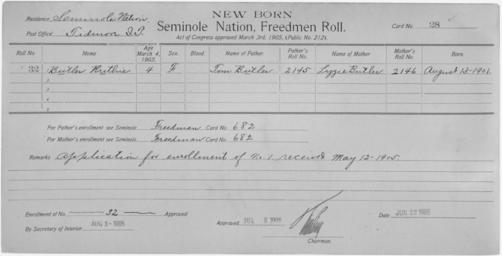 NEW BORN
Residence Seminole Nation
Seminole Nation, Freedmen Roll.
Card No. 28
Post Office I.T.
Act of Congress approved March 3rd, 1905, (Public No. 212).
Roll No. Name Age March 4, 1905. Sex. Blood. Name of Father Father's Roll No. Name of Mother Mother's Roll No. Born.
32 Butler 4 F Tom Butler 2145 Lizzie Butler 2146 August 13-1901
For Father's enrollment see Seminole Freedman Card No. 682
For Mother's enrollment see Seminole Freedman Card No. 682
Remarks Application for enrollment of No. 1 received May 12-1905.
Enrollment of No. 32 Approved
By Secretary of Interior 1905
Approved 1905
Chairman.
Date JUN 1905